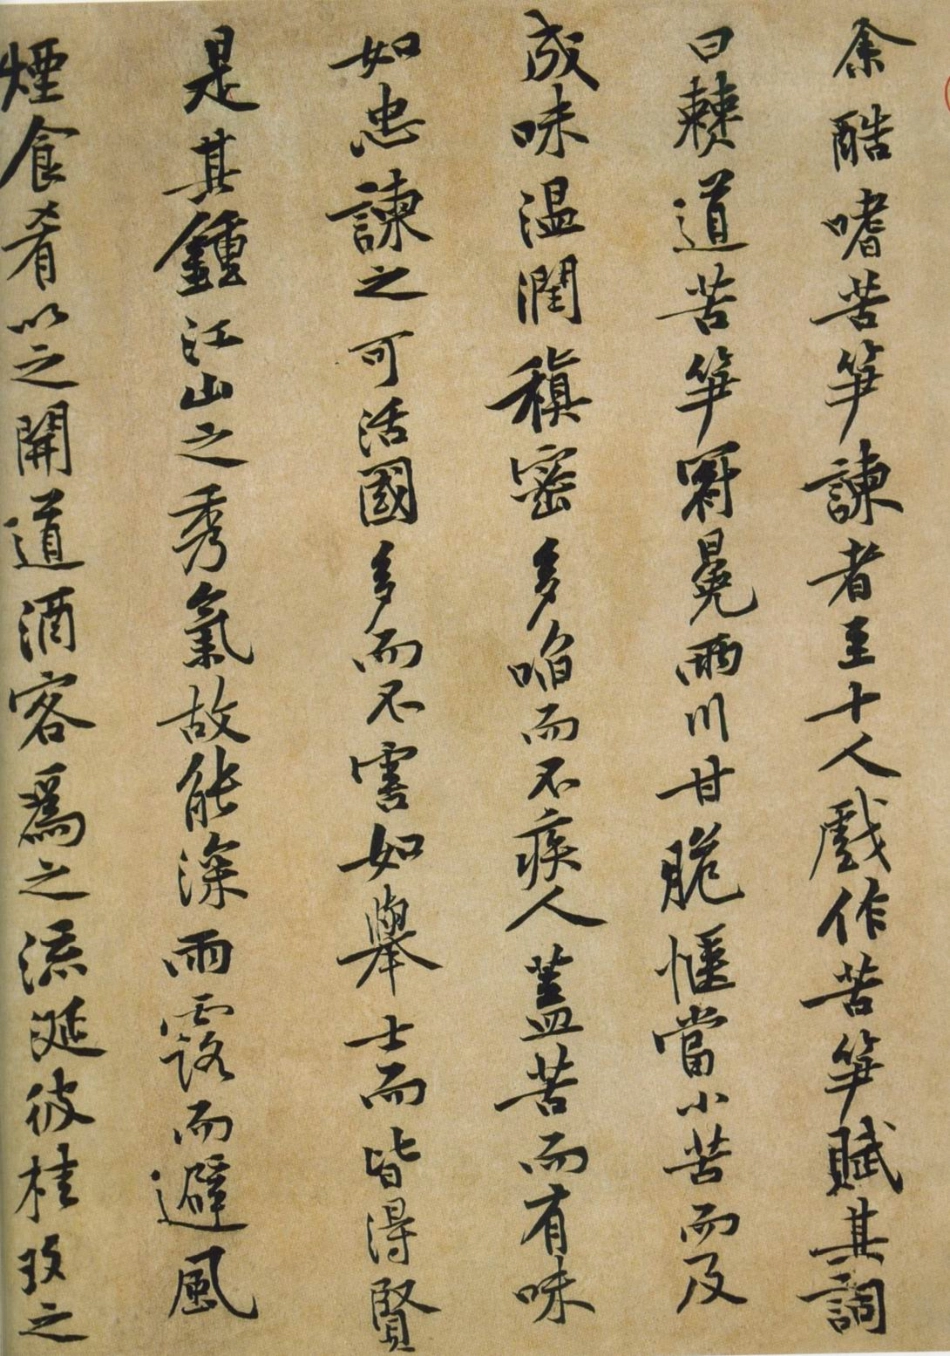 余酷嗜苦笋諫者至十人戲作苦笋賦其詞
曰僰道苦笋冠冕兩川甘脆愜當小苦而及
成味溫潤稹密多啗而不疾人蓋苦而有味
如忠諫之可活國多而不害如舉士而皆得賢
是其鍾江山之秀氣故能深雨露而避風
煙食肴以之開道酒客為之流涎彼桂玫之